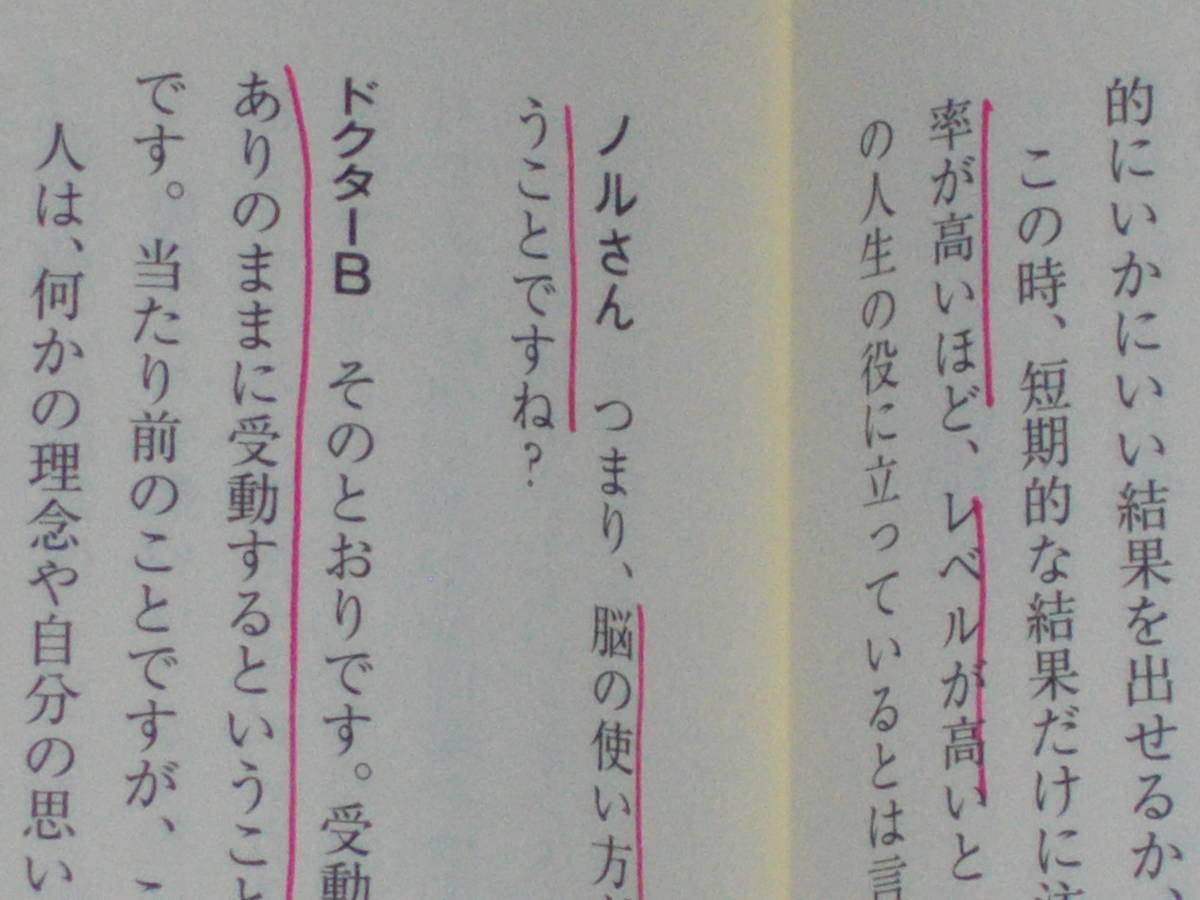 的にいかにいい結果を出せるか、
この時、短期的な結果だけに注
率が高いほど、レベルが高いと
の人生の役に立っているとは言
ノルさん　つまり、脳の使い方
うことですね？
ドクターB　そのとおりです。受動
ありのままに受動するということ
です。当たり前のことですが、こ
人は、何かの理念や自分の思い